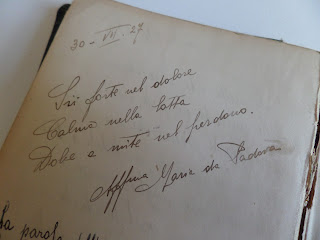 30-VII.27
Sii forte nel dolore
Calma nella lotta
Dolce e mite nel perdono.
Maria da Padova
La parola